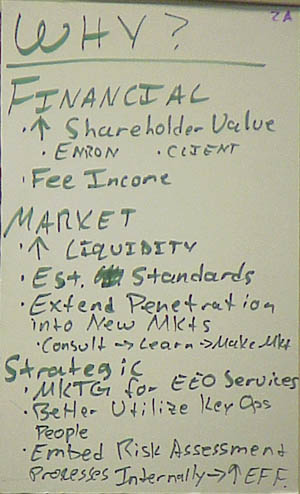 2A
WHY?
FINANCIAL
· ↑ Shareholder Value
· ENRON · CLIENT
· Fee Income
MARKET
· ↑ LIQUIDITY
· Est. Standards
· Extend Penetration
into New Mkts
· Consult → Learn → Make Mkt
Strategic
· MKTG for EEO Services
· Better Utilize Key Ops
People
· Embed Risk Assessment
Processes Internally → ↑ EFF.